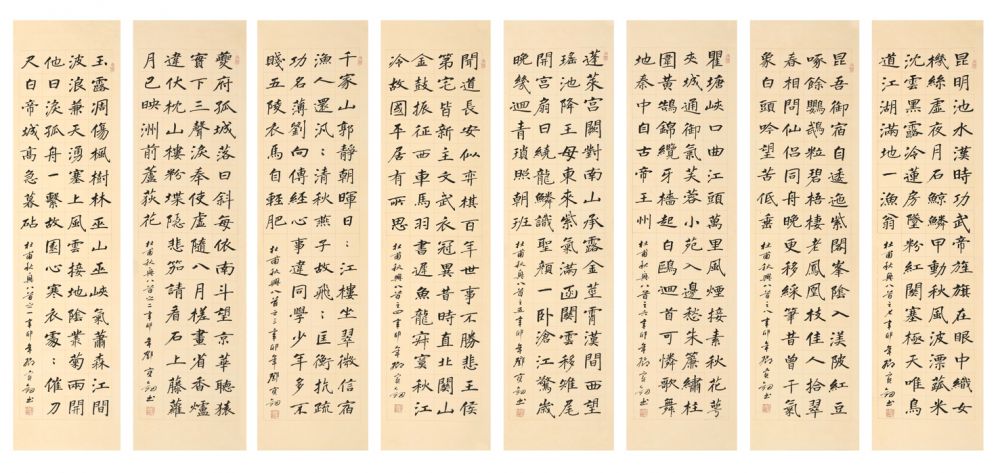 玉露凋傷楓樹林巫山巫峽氣蕭森江間
波浪兼天湧塞上風雲接地陰叢菊兩開
他日淚孤舟一繫故園心寒衣處〻催刀
尺白帝城高急暮砧 杜甫秋興八首之一 辛卯年鄧寶劍書
夔府孤城落日斜每依南斗望京華聽猿
實下三聲淚奉使虛隨八月槎畫省香爐
違伏枕山樓粉堞隱悲笳請看石上藤蘿
月已映洲前蘆荻花 杜甫秋興八首之二 辛卯年鄧寶劍書
千家山郭靜朝暉日〻江樓坐翠微信宿
漁人還汎〻清秋燕子故飛〻匡衡抗疏
功名薄劉向傳經心事違同學少年多不
賤五陵衣馬自輕肥 杜甫秋興八首之三 辛卯年鄧寶劍書
聞道長安似弈棋百年世事不勝悲王侯
第宅皆新主文武衣冠異昔時直北關山
金鼓振征西車馬羽書遲魚龍寂寞秋江
冷故國平居有所思 杜甫秋興八首之四 辛卯年鄧寶劍書
蓬萊宮闕對南山承露金莖霄漢間西望
瑤池降王母東來紫氣滿函關雲移雉尾
開宮扇日繞龍鱗識聖顏一卧滄江驚歲
晚幾迴青瑣照朝班 杜甫秋興八首之五 辛卯年鄧寶劍書
瞿塘峽口曲江頭萬里風煙接素秋花萼
夾城通御氣芙蓉小苑入邊愁朱簾繡柱
圍黃鵠錦纜牙檣起白鷗迴首可憐歌舞
地秦中自古帝王州 杜甫秋興八首之六 辛卯年鄧寶劍書
昆吾御宿自逶迤紫閣峯陰入渼陂紅豆
啄餘鸚鵡粒碧梧棲老鳳凰枝佳人拾翠
春相問仙侶同舟晚更移綵筆昔曾干氣
象白頭吟望苦低垂 杜甫秋興八首之八 辛卯年鄧寶劍書
昆明池水漢時功武帝旌旗在眼中織女
機絲虛夜月石鯨鱗甲動秋風波漂菰米
沈雲黑露冷蓮房墜粉紅關塞極天唯鳥
道江湖滿地一漁翁 杜甫秋興八首之七 辛卯年鄧寶劍書